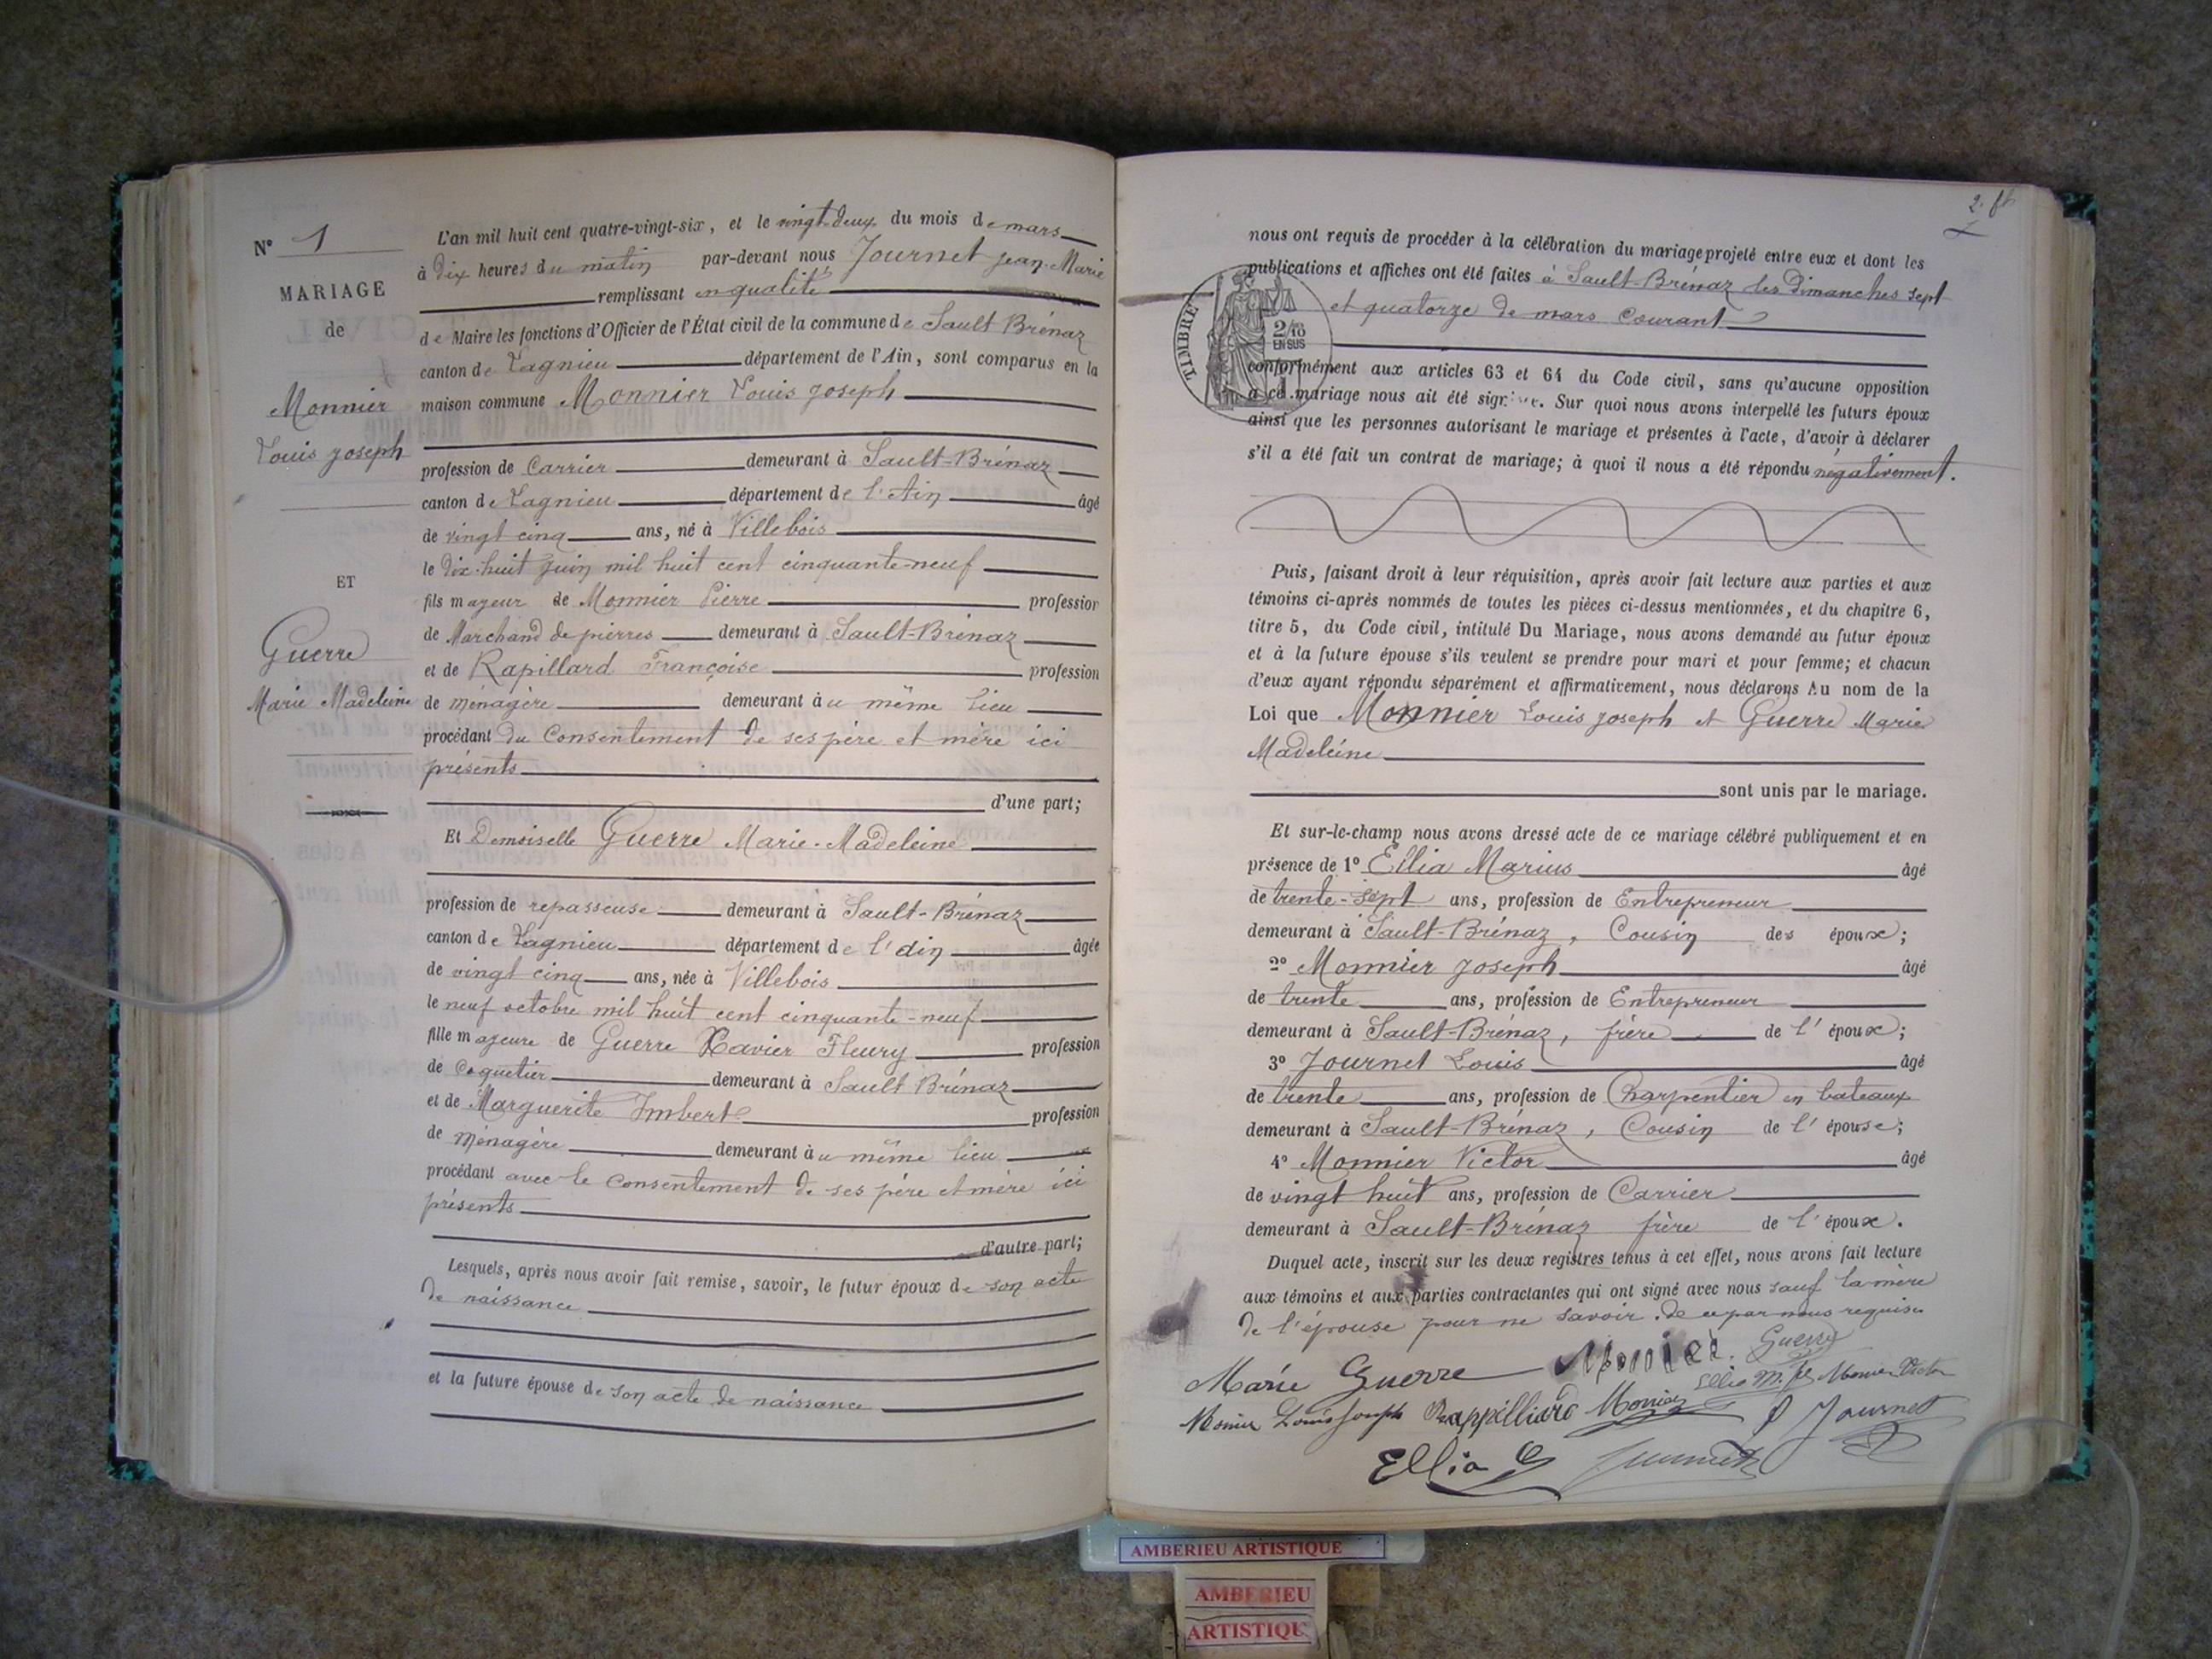 N° 1
MARIAGE
de
Monnier
Louis Joseph
ET
Guerre
Marie Madeleine
L'an mil huit cent quatre-vingt-six, et le vingt-deux du mois de mars
à dix heures du matin par-devant nous Journet Jean-Marie
remplissant en qualité
de Maire les fonctions d'Officier de l'État civil de la commune de Sault Brénaz
canton de Lagnieu département de l'Ain, sont comparus en la
maison commune Monnier Louis Joseph
profession de Carrier demeurant à Sault-Brénaz
canton de Lagnieu département de l'Ain âgé
de vingt cinq ans, né à Villebois
le dix-huit Juin mil huit cent cinquante-neuf
fils majeur de Monnier Pierre profession
de Marchand de pierres demeurant à Sault-Brénaz
et de Rapillard Françoise profession
de ménagère demeurant au même lieu
procédant du Consentement de ses père et mère ici
présents
d'une part;
Et Demoiselle Guerre Marie-Madeleine
profession de repasseuse demeurant à Sault-Brénaz
canton de Lagnieu département de l'Ain âgée
de vingt cinq ans, née à Villebois
le neuf octobre mil huit cent cinquante-neuf
fille majeure de Guerre Xavier Fleury profession
de Coquetier demeurant à Sault Brénaz
et de Marguerite Imbert profession
de Ménagère demeurant au même lieu
procédant avec le Consentement de ses père et mère ici
présents
d'autre part;
Lesquels, après nous avoir fait remise, savoir, le futur époux de son acte
de naissance
et la future épouse de son acte de naissance
2
nous ont requis de procéder à la célébration du mariage projeté entre eux et dont les
publications et affiches ont été faites à Sault-Brénaz les Dimanches sept
et quatorze de mars Courant
TIMBRE
2/10
EN SUS
conformément aux articles 63 et 64 du Code civil, sans qu'aucune opposition
a ce mariage nous ait été signifiée. Sur quoi nous avons interpellé les futurs époux
ainsi que les personnes autorisant le mariage et présentes à l'acte, d'avoir à déclarer
s'il a été fait un contrat de mariage; à quoi il nous a été répondu négativement.
Puis, faisant droit à leur réquisition, après avoir fait lecture aux parties et aux
témoins ci-après nommés de toutes les pièces ci-dessus mentionnées, et du chapitre 6,
titre 5, du Code civil, intitulé Du Mariage, nous avons demandé au futur époux
et à la future épouse s'ils veulent se prendre pour mari et pour femme; et chacun
d'eux ayant répondu séparément et affirmativement, nous déclarons Au nom de la
Loi que Monnier Louis Joseph et Guerre Marie
Madeleine
sont unis par le mariage.
Et sur-le-champ nous avons dressé acte de ce mariage célébré publiquement et en
présence de 1° Ellia Marius âgé
de trente-sept ans, profession de Entrepreneur
demeurant à Sault-Brénaz, Cousin des époux;
2° Monnier Joseph âgé
de trente ans, profession de Entrepreneur
demeurant à Sault-Brénaz, frère de l'époux;
3° Journet Louis âgé
de trente ans, profession de Charpentier en bateaux
demeurant à Sault-Brénaz, Cousin de l'épouse;
4° Monnier Victor âgé
de vingt huit ans, profession de Carrier
demeurant à Sault-Brénaz frère de l'époux.
Duquel acte, inscrit sur les deux registres tenus à cet effet, nous avons fait lecture
aux témoins et aux parties contractantes qui ont signé avec nous sauf la mère
de l'épouse pour ne savoir de ce par nous requise
Marie Guerre Monier Guerre
Ellia M. Monier Victor
Monier Louis Joseph Rappilliard Monier Journet
Ellia Journet
AMBERIEU ARTISTIQUE
AMBERIEU
ARTISTIQUE